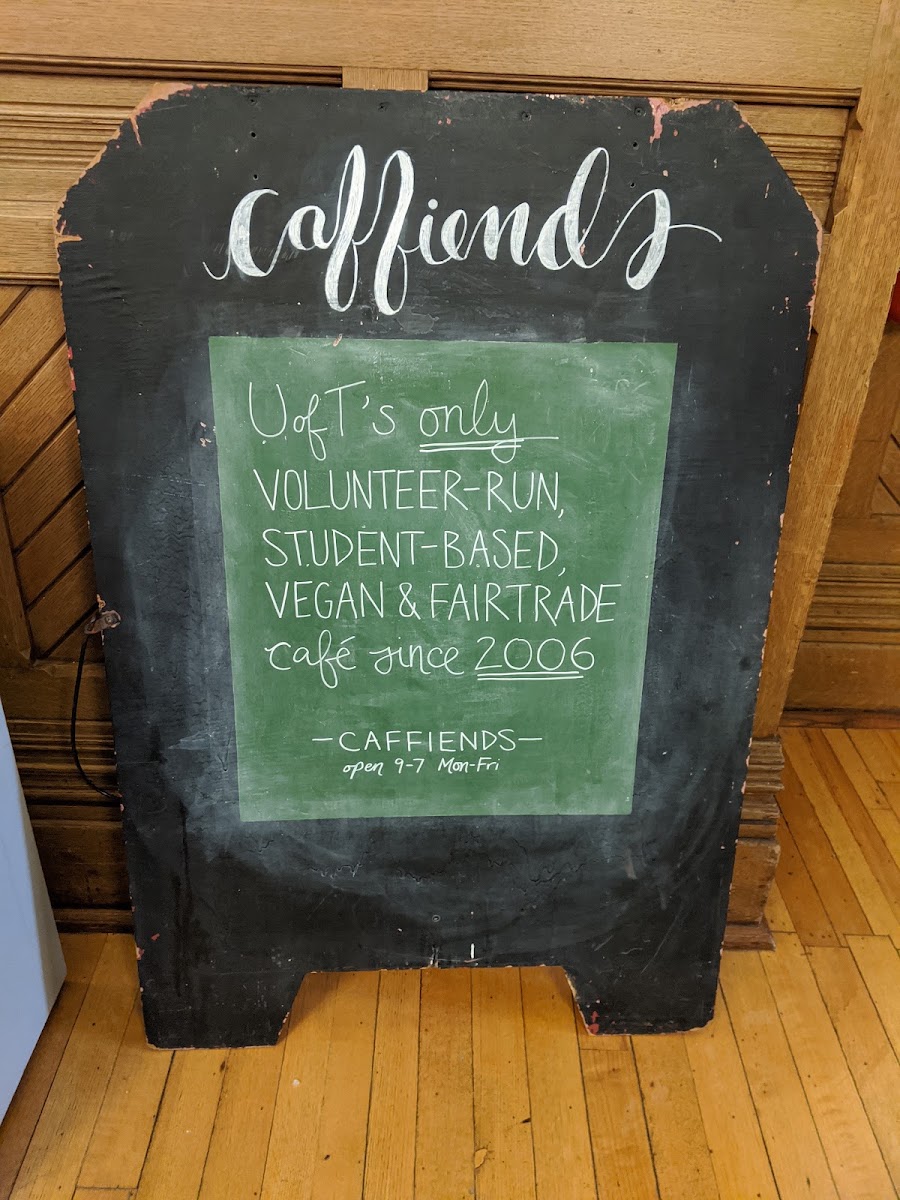 caffiends
UofT's only
VOLUNTEER-RUN,
STUDENT-BASED,
VEGAN & FAIRTRADE
café since 2006
-CAFFIENDS-
open 9-7 Mon-Fri